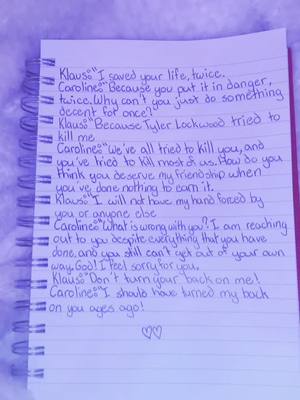 Klaus: "I saved your life, twice.
Caroline: "Because you put it in danger,
twice. Why can't you just do something
decent for once?
Klaus: "Because Tyler Lockwood tried to
kill me
Caroline: "We've all tried to kill you, and
you've tried to kill most of us. How do you
think you deserve my friendship when
you've done nothing to earn it.
Klaus: "I will not have my hand forced by
you or anyone else
Caroline: "What is wrong with you? I am reaching
out to you despite everything that you have
done, and you still can't get out of your own
way. God! I feel sorry for you.
Klaus: "Don't turn your back on me!
Caroline: "I should have turned my back
on you ages ago!
♡♡